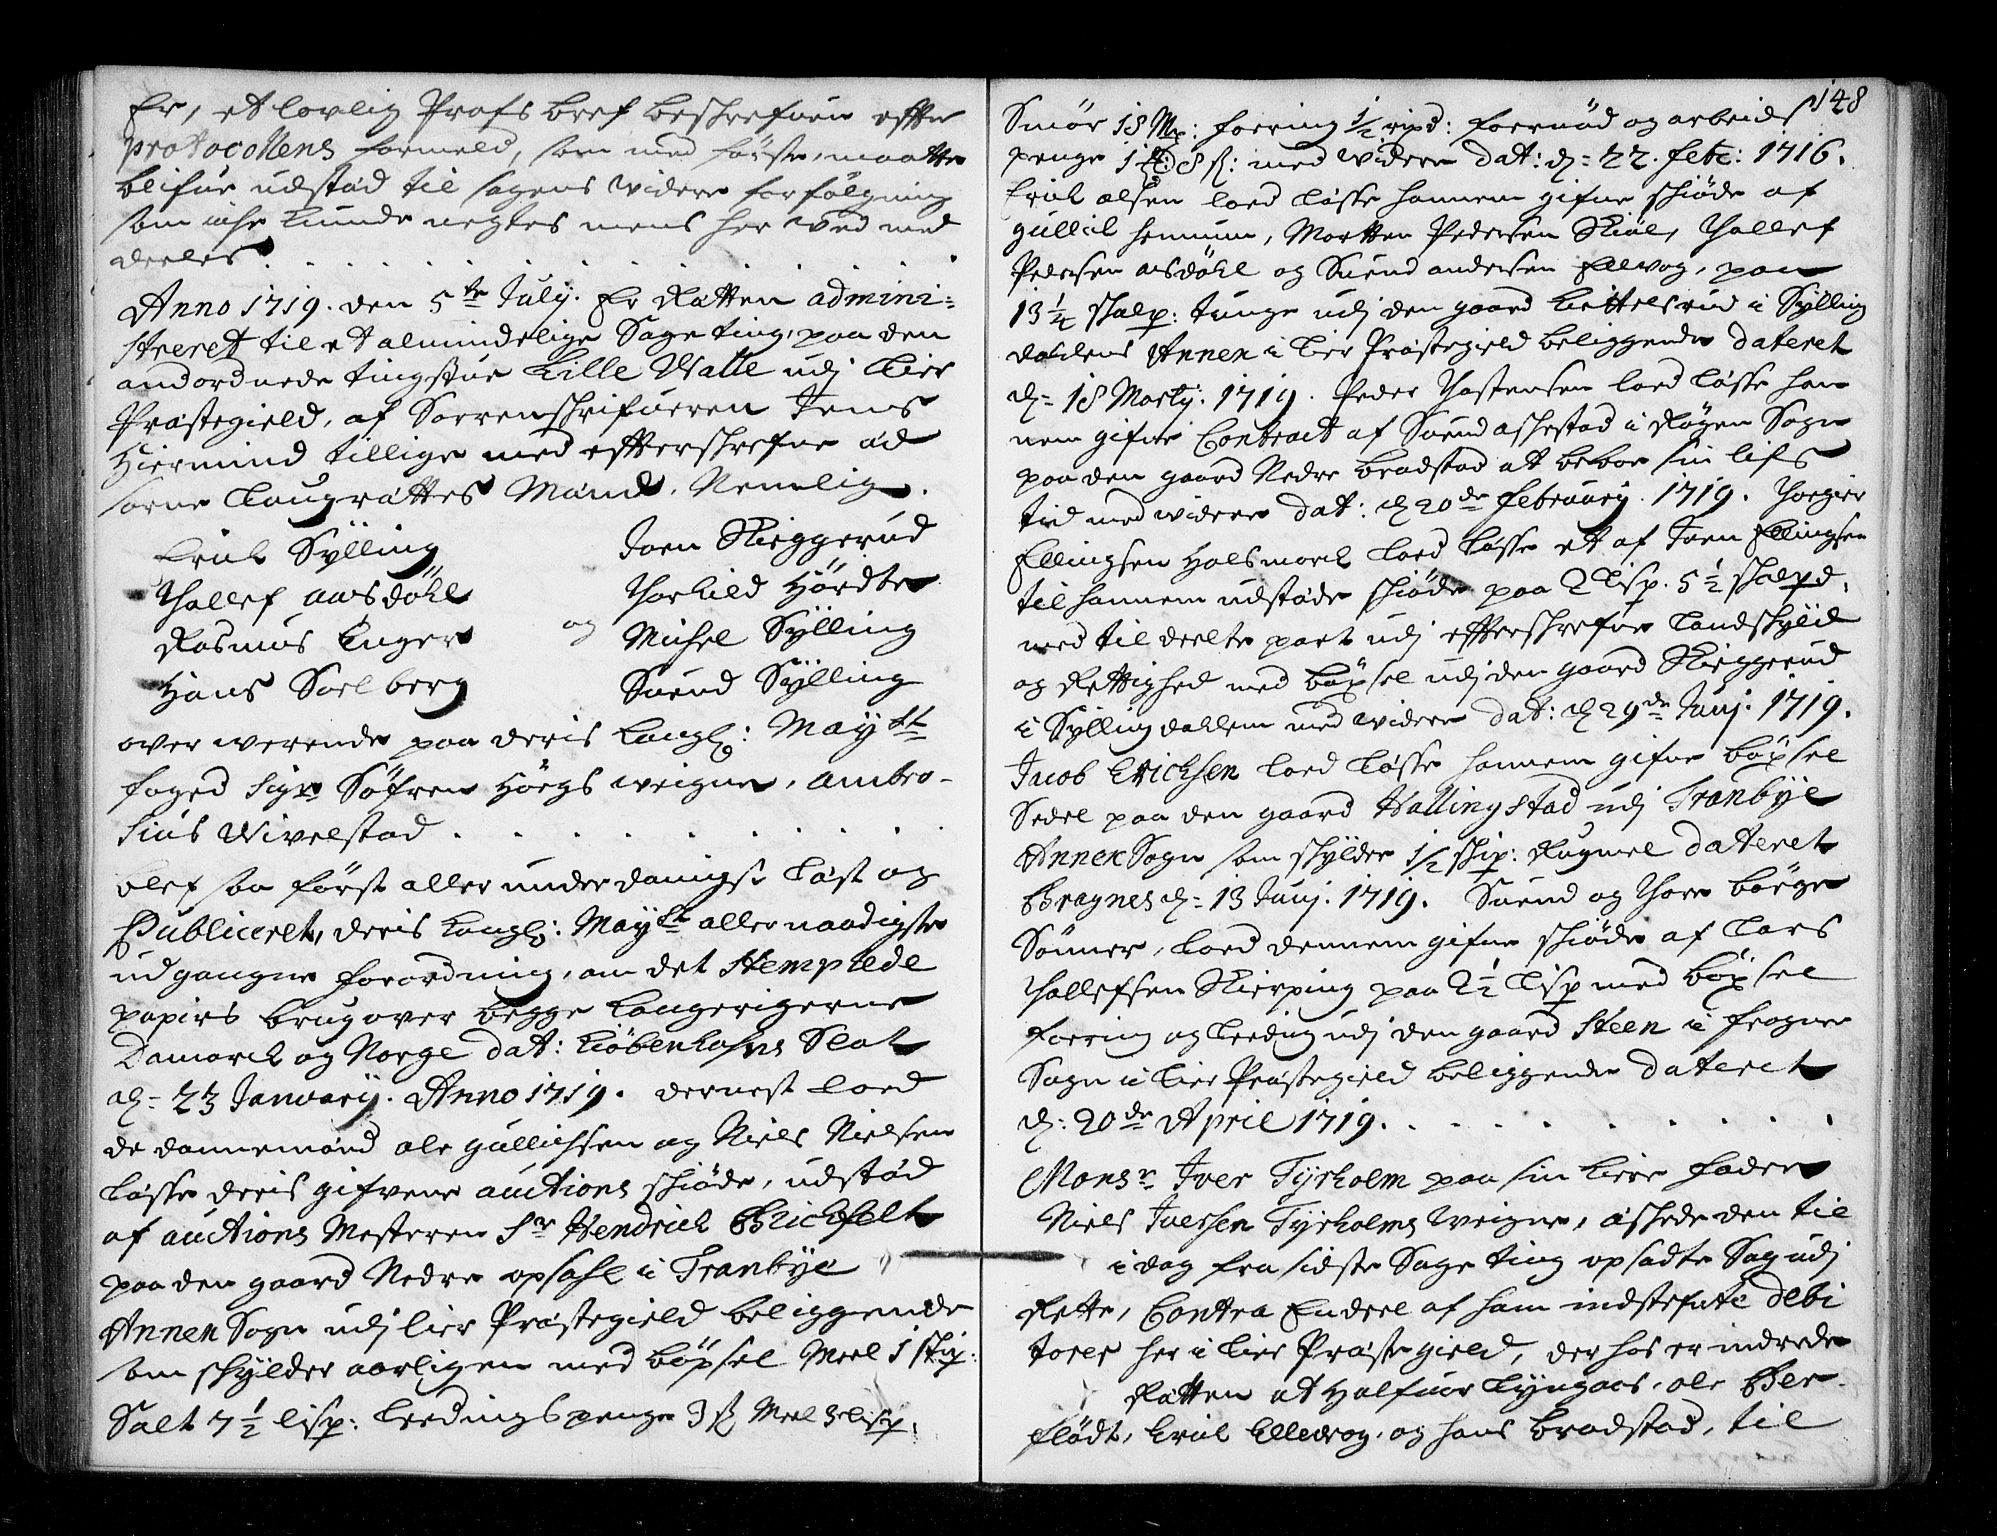 Er, et lovlig Profs bref beskrefuen effter
Protocollens formeld, som med første, maatte
blifue udstæd til sagens widere forfølgning
som iche kunde negtes mens her wed med
deeles
Anno 1719. den 5te July. Er Rætten admini-
streret til et almindelige Sage ting, paa den
andordnede tingstue Lille Walle udj Lier
Præstegield, af Sorrenschrifueren Jens
Hiermind tillige med effterschrefne æd
sorne Laugrættes Mænd. Nemlig.
Erich Sylling
Joen Skieggerud
Thallef aasdøhl
Thorkild Hørdte
Rasmus Enger
og
Michel Sylling
Hans Soelberg
Suend Sylling
over werende paa deris kongl: Maytt
foged Sigr Søfren Høegs weigne, Ambro-
sius Wivelstad
blef saa først aller underdanigst læst og
Publiceret, deris kongl: Maytt allernaadigste
udgangne forordning, om det Stemplede
papirs brug over begge kongerigerne
Danmarck og Norge dat: Kiøbenhafns Slot
d= 23 January. Anno 1719. dernest loed
de dannemænd ole gullichsen og Niels Nielsen
læsse deris gifvene auctions skiøde, udstæd
af auctions Mesteren Sr Hendrich Brichfelt
paa den gaard Nedre opsahl i Tranbye
Annex Sogn udj lier Præstegield beliggende
som skylder aarligen med bøxsel Meel 1 skip:
Salt 7 1/2 lisp: Leedings penge 3 ß Meel 3 lisp:
148
Smør 18 Mp: foering 1/2 ripd: foernød og arbeids
penge 8 ß: med widere dat: d= 22. febr: 1716.
Erich olsen loed læsse hannem gifne skiøde af
gullich hennum, Morten Pedersen Skiøl, Thallef
Pedersen aasdøhl og Suend andersen Ellevog, paa
13 1/4 skalp: tunge udj den gaard Kittelsrud i Sylling
dahlens Annex i Lier Præstegield beliggende dateret
d= 18 Martij: 1719. Peder Thostensen loed læsse han
nem gifne Contract af Suend askestad i Røgen Sogn
paa den gaard Nedre bradstad at beboe sin lifs
tid med widere dat: d 20de february. 1719. Thorgier
Ellingsen Holsmorch loed læsse et af Joen Ellingsen
til hannem udstæde skiøde paa 2 Lisp. 5 1/2 skalpd.
med til deelte part udj effterschrefne Landskyld
og Rettighed med bøxsel udj den gaard Skieggerud
i Sylling dahlen med widere dat: d 29de Junj. 1719.
Jacob Erichsen loed læsse hannem gifne bøxsel
Sedel paa den gaard Hallingstad udj Tranbye
Annex Sogn som skylder 1/2 skip: Rugmel dateret
Bragnes d= 13 Junj. 1719. Suend og Thore børge
Sønner, loed dennem gifne skiøde af Lars
Thallefsen Skierping paa 2 1/2 Lisp med bøxsel
foering og leeding udj den gaard Steen i frogner
Sogn i Lier Præstegield beliggende dateret
d: 20de April 1719.
Monsr Iver Tyrholm paa sin kiere faders
Niels Iuersen Tyrholms weigne, æskede den til
i dag fra sidste Sage ting opsadte Sag udj
Rette, Contra Endeel af ham indstefnte debi
torer her i Lier Præstegield, der hos er indrede
Rætten at Halfuor Lyngaas, ole Ber-
flødt, Erich Ellevog, og hans bradstad, til